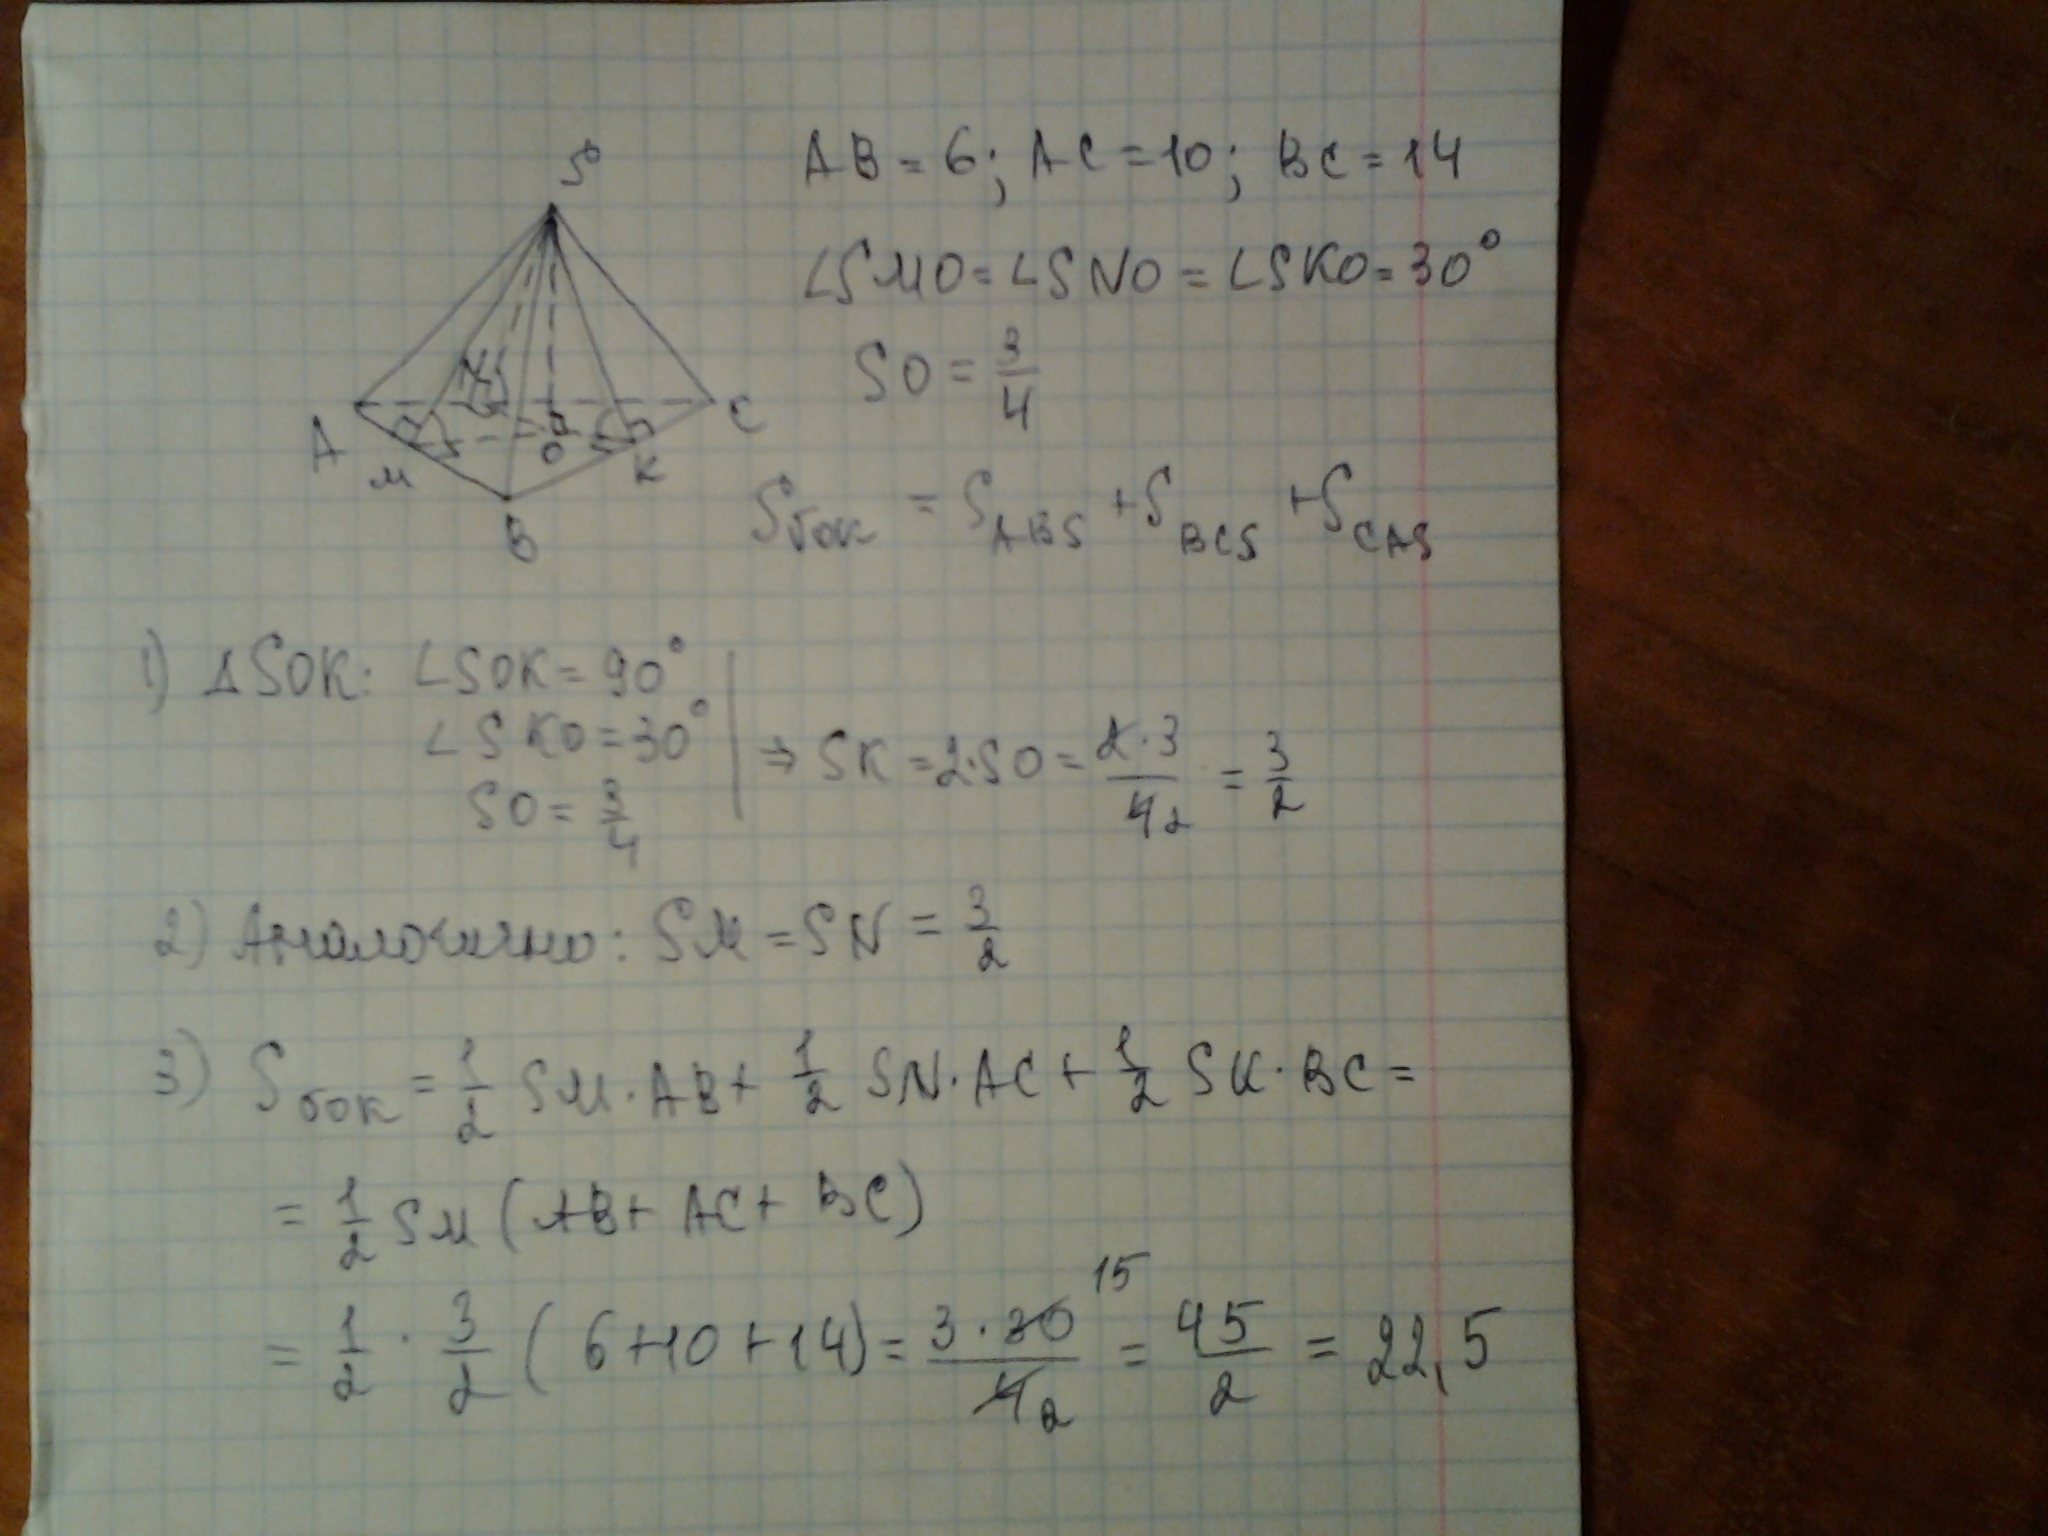 S
AB = 6; AC = 10; BC = 14
∠SMO = ∠SNO = ∠SKO = 30°
SO = 3/4
N
A M O K C
B
Sбок = S ABS + S BCS + S CAS
1) ΔSOK: ∠SOK = 90°
∠SKO = 30°
SO = 3/4
⇒ SK = 2·SO = 2·3/4 2 = 3/2
2) Аналогично: SM = SN = 3/2
3) Sбок = 1/2 SM·AB + 1/2 SN·AC + 1/2 SK·BC =
= 1/2 SM (AB + AC + BC)
= 1/2 · 3/2 (6+10+14) = 3·30 15/4 2 = 45/2 = 22,5